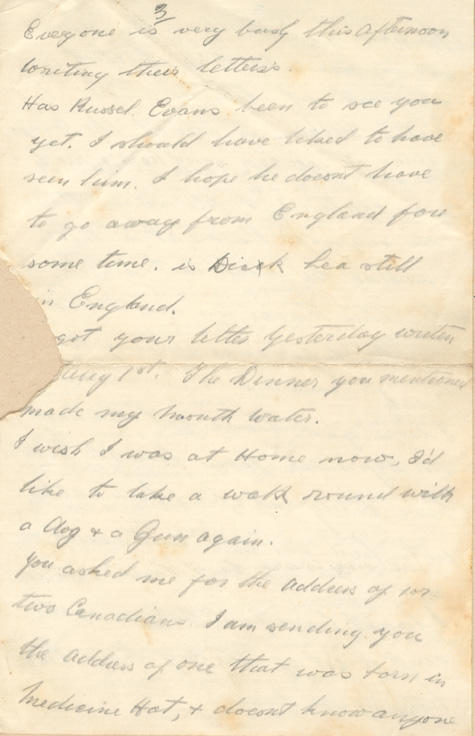 3
Everyone is very busy this afternoon
writing their letters.
Has Russel Evans been to see you
yet. I should have liked to have
seen him. I hope he doesnt have
to go away from England fore
some time. is Dick Lea still
in England.
got your letter yesterday writen
Aug 1st. The Dinner you mentioned
made my mouth water.
I wish I was at Home now, I'd
like to take a walk round with
a dog & a Gun again.
You asked me for the address of
two Canadians. I am sending you
the address of one that was born in
Medicine Hat, & doesnt know anyone